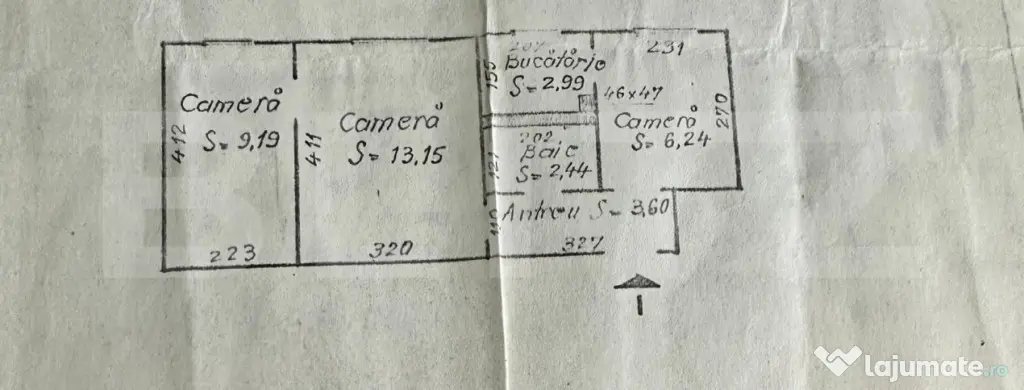 Cameră
S= 9,19
412
223
Cameră
S= 13,15
411
320
207
Bucătărie
S= 2,99
155
46x47
231
Cameră
S= 6,24
270
202
Baie
S= 2,44
121
Antreu S= 3,60
327
I
lajumate.ro